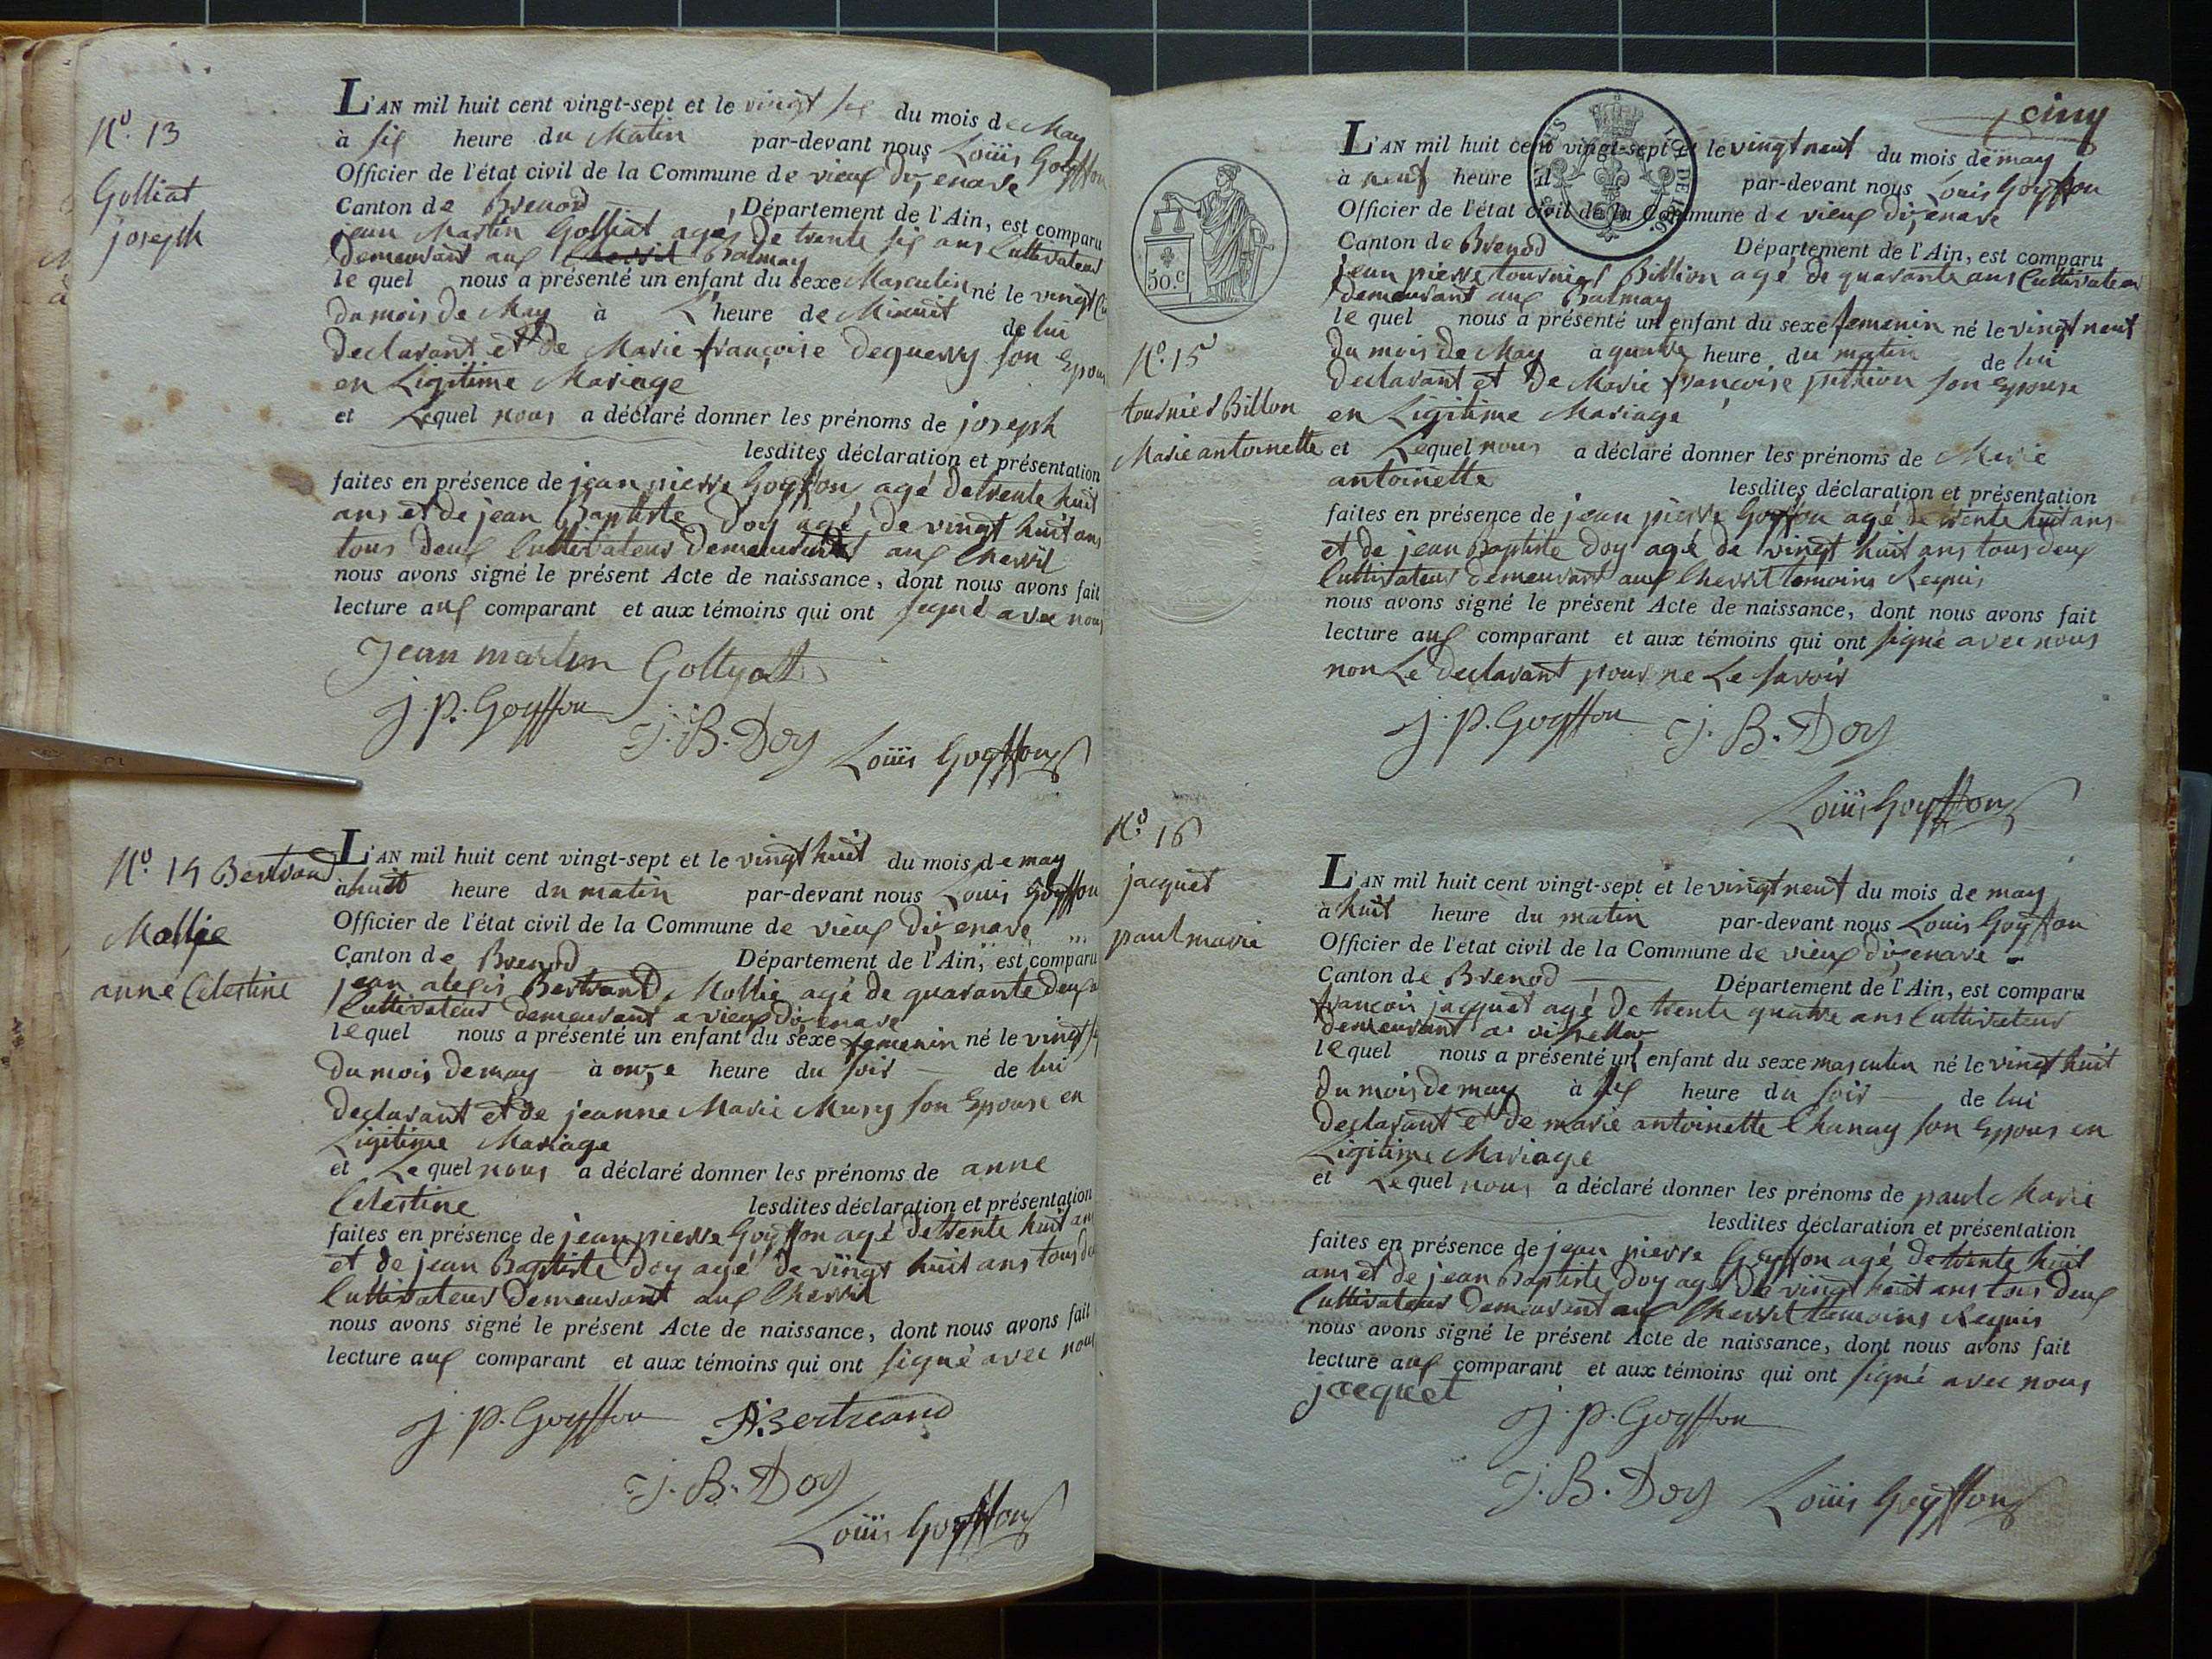 Nº. 13
Golliat
joseph
L'AN mil huit cent vingt-sept et le vingt six du mois de May
à six heure du Matin par-devant nous Louis Goyffon
Officier de l'état civil de la Commune de vieux d'izenave
Canton de Brenod Département de l'Ain, est comparu
jean Martin Golliat agé de trente six ans Cultivateur
demeurant aux Balmay
le quel nous a présenté un enfant du sexe Masculin né le vingt
du mois de May à L'heure de Minuit de lui
declarant et de Marie françoise dequerry son Epouse
en Ligitime Mariage
et Lequel nous a déclaré donner les prénoms de joseph
lesdites déclaration et présentation
faites en présence de jean pierre Goyffon agé de trente huit
ans et de jean Baptiste Doy agé de vingt huit ans
tous deux Cultivateur demeurant aux Cherril
nous avons signé le présent Acte de naissance, dont nous avons fait
lecture aux comparant et aux témoins qui ont signé avec nous
Jean martin Gollyat
J. P. Goyffon
J. B. Doy
Louis Goyffon
Nº. 14 Bertrand
Mollie
anne Celestine
L'AN mil huit cent vingt-sept et le vingt huit du mois de may
à huit heure du matin par-devant nous Louis Goyffon
Officier de l'état civil de la Commune de vieux d'izenave
Canton de Brenod Département de l'Ain, est comparu
jean alexis Bertrand Mollie agé de quarante deux
Cultivateur demeurant a vieux d'izenave
le quel nous a présenté un enfant du sexe femenin né le vingt
du mois de may à onze heure du soir de lui
declarant et de jeanne Marie Mury son Epouse en
Ligitime Mariage
et Le quel nous a déclaré donner les prénoms de anne
Celestine lesdites déclaration et présentation
faites en présence de jean pierre Goyffon agé de trente huit ans
et de jean Baptiste Doy agé de vingt huit ans tous
Cultivateur demeurant aux Cherril
nous avons signé le présent Acte de naissance, dont nous avons fait
lecture aux comparant et aux témoins qui ont signé avec nous
J. P. Goyffon
A. Bertrand
J. B. Doy
Louis Goyffon
cinq
50.c
Nº. 15
tournier Billon
Marie antoinette
L'AN mil huit cent vingt-sept et le vingt neuf du mois de may
à neuf heure d par-devant nous Louis Goyffon
Officier de l'état civil de la Commune de vieux d'izenave
Canton de Brenod Département de l'Ain, est comparu
jean pierre tournier Billion agé de quarante ans Cultivateur
demeurant aux Balmay
le quel nous a présenté un enfant du sexe femenin né le vingt neuf
du mois de May a quatre heure du matin de lui
declarant et de Marie françoise pittion son Epouse
en Ligitime Mariage
et Lequel nous a déclaré donner les prénoms de Marie
antoinette lesdites déclaration et présentation
faites en présence de jean pierre Goyffon agé de trente huit ans
et de jean Baptiste Doy agé de vingt huit ans tous deux
Cultivateur demeurant aux Cherril temoins Requis
nous avons signé le présent Acte de naissance, dont nous avons fait
lecture aux comparant et aux témoins qui ont signé avec nous
non Le declarant pour ne Le savoir
J. P. Goyffon
J. B. Doy
Louis Goyffon
Nº. 16
jacquet
paul marie
L'AN mil huit cent vingt-sept et le vingt neuf du mois de may
à huit heure du matin par-devant nous Louis Goyffon
Officier de l'état civil de la Commune de vieux d'izenave
Canton de Brenod Département de l'Ain, est comparu
françois jacquet agé de trente quatre ans Cultivateur
demeurant a
le quel nous a présenté un enfant du sexe masculin né le vingt huit
du mois de may à six heure du soir de lui
declarant et de marie antoinette Chanay son Epous en
Ligitime Mariage
et Lequel nous a déclaré donner les prénoms de paul Marie
lesdites déclaration et présentation
faites en présence de jean pierre Goyffon agé de trente huit
ans et de jean Baptiste Doy agé de vingt huit ans tous deux
Cultivateur demeurant aux Cherril temoins Requis
nous avons signé le présent Acte de naissance, dont nous avons fait
lecture aux comparant et aux témoins qui ont signé avec nous
jacquet
J. P. Goyffon
J. B. Doy
Louis Goyffon